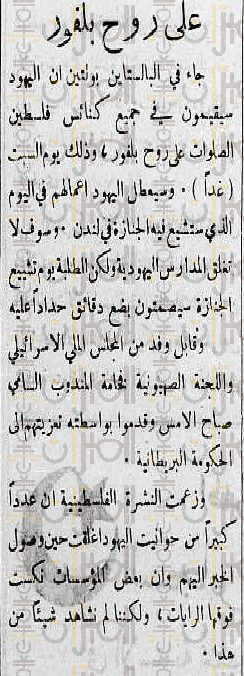 على روح بلفور
جاء في البالستاين بولتين ان اليهود
سيقيمون في جميع كنائس فلسطين
الصلوات على روح بلفور، وذلك يوم السبت
(غداً). وسيعطل اليهود اعمالهم في اليوم
الذي ستشيع فيه الجنازة في لندن. وسوف لا
تغلق المدارس اليهودية ولكن الطلبة يوم تشييع
الجنازة سيصمتون بضع دقائق حداداً عليه
وقابل وفد من المجلس الملي الاسرائيلي
واللجنة الصهيونية فخامة المندوب السامي
صباح الامس وقدموا بواسطته تعزيتهم الى
الحكومة البريطانية.
وزعمت النشرة الفلسطينية ان عدداً
كبيراً من حوانيت اليهود اغلقت حين وصول
الخبر اليهم وان بعض المؤسسات نكست
فوقها الرايات، ولكننا لم نشاهد شيئاً من
هذا.